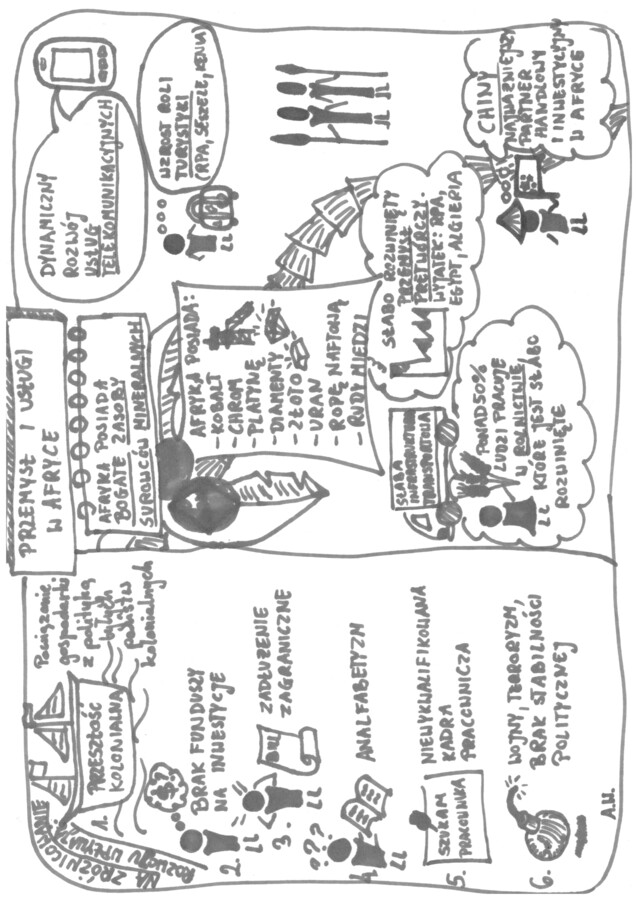 PRZEMYSŁ I USŁUGI
W AFRYCE
NA ZRÓŻNICOWANIE
ROZWOJU WPŁYWA:
1.
PRZESZŁOŚĆ
KOLONIALNA
Powiązanie
gospodarki
z polityką
byłych
państw
kolonialnych
2.
$
BRAK FUNDUSZY
NA INWESTYCJE
3.
BILL
ZADŁUŻENIE
ZAGRANICZNE
4.
???
ANALFABETYZM
5.
SZUKAM
PRACOWNIKA
NIEWYKWALIFIKOWANA
KADRA
PRACOWNICZA
6.
WOJNY, TERRORYZM,
BRAK STABILNOŚCI
POLITYCZNEJ
A.H.
AFRYKA POSIADA
BOGATE ZASOBY
SUROWCÓW MINERALNYCH
AFRYKA POSIADA:
- KOBALT
- CHROM
- PLATYNĘ
- DIAMENTY
- ZŁOTO
- URAN
- ROPĘ NAFTOWĄ
- RUDY MIEDZI
SŁABA
INFRASTRUKTURA
TRANSPORTOWA
PONAD 50%
LUDZI PRACUJE
W ROLNICTWIE,
KTÓRE JEST SŁABO
ROZWINIĘTE
SŁABO ROZWINIĘTY
PRZEMYSŁ
PRETWÓRCZY.
WYJATEK: RPA,
EGIPT, ALGIERIA
DYNAMICZNY
ROZWÓJ
USŁUG
TELEKOMUNIKACYJNYCH
WZROST ROLI
TURYSTYKI
(RPA, SESZELE, KENIA)
CHINY
NAJWAŻNIEJSZY
PARTNER
HANDLOWY
I INWESTYCYJNY
W AFRYCE